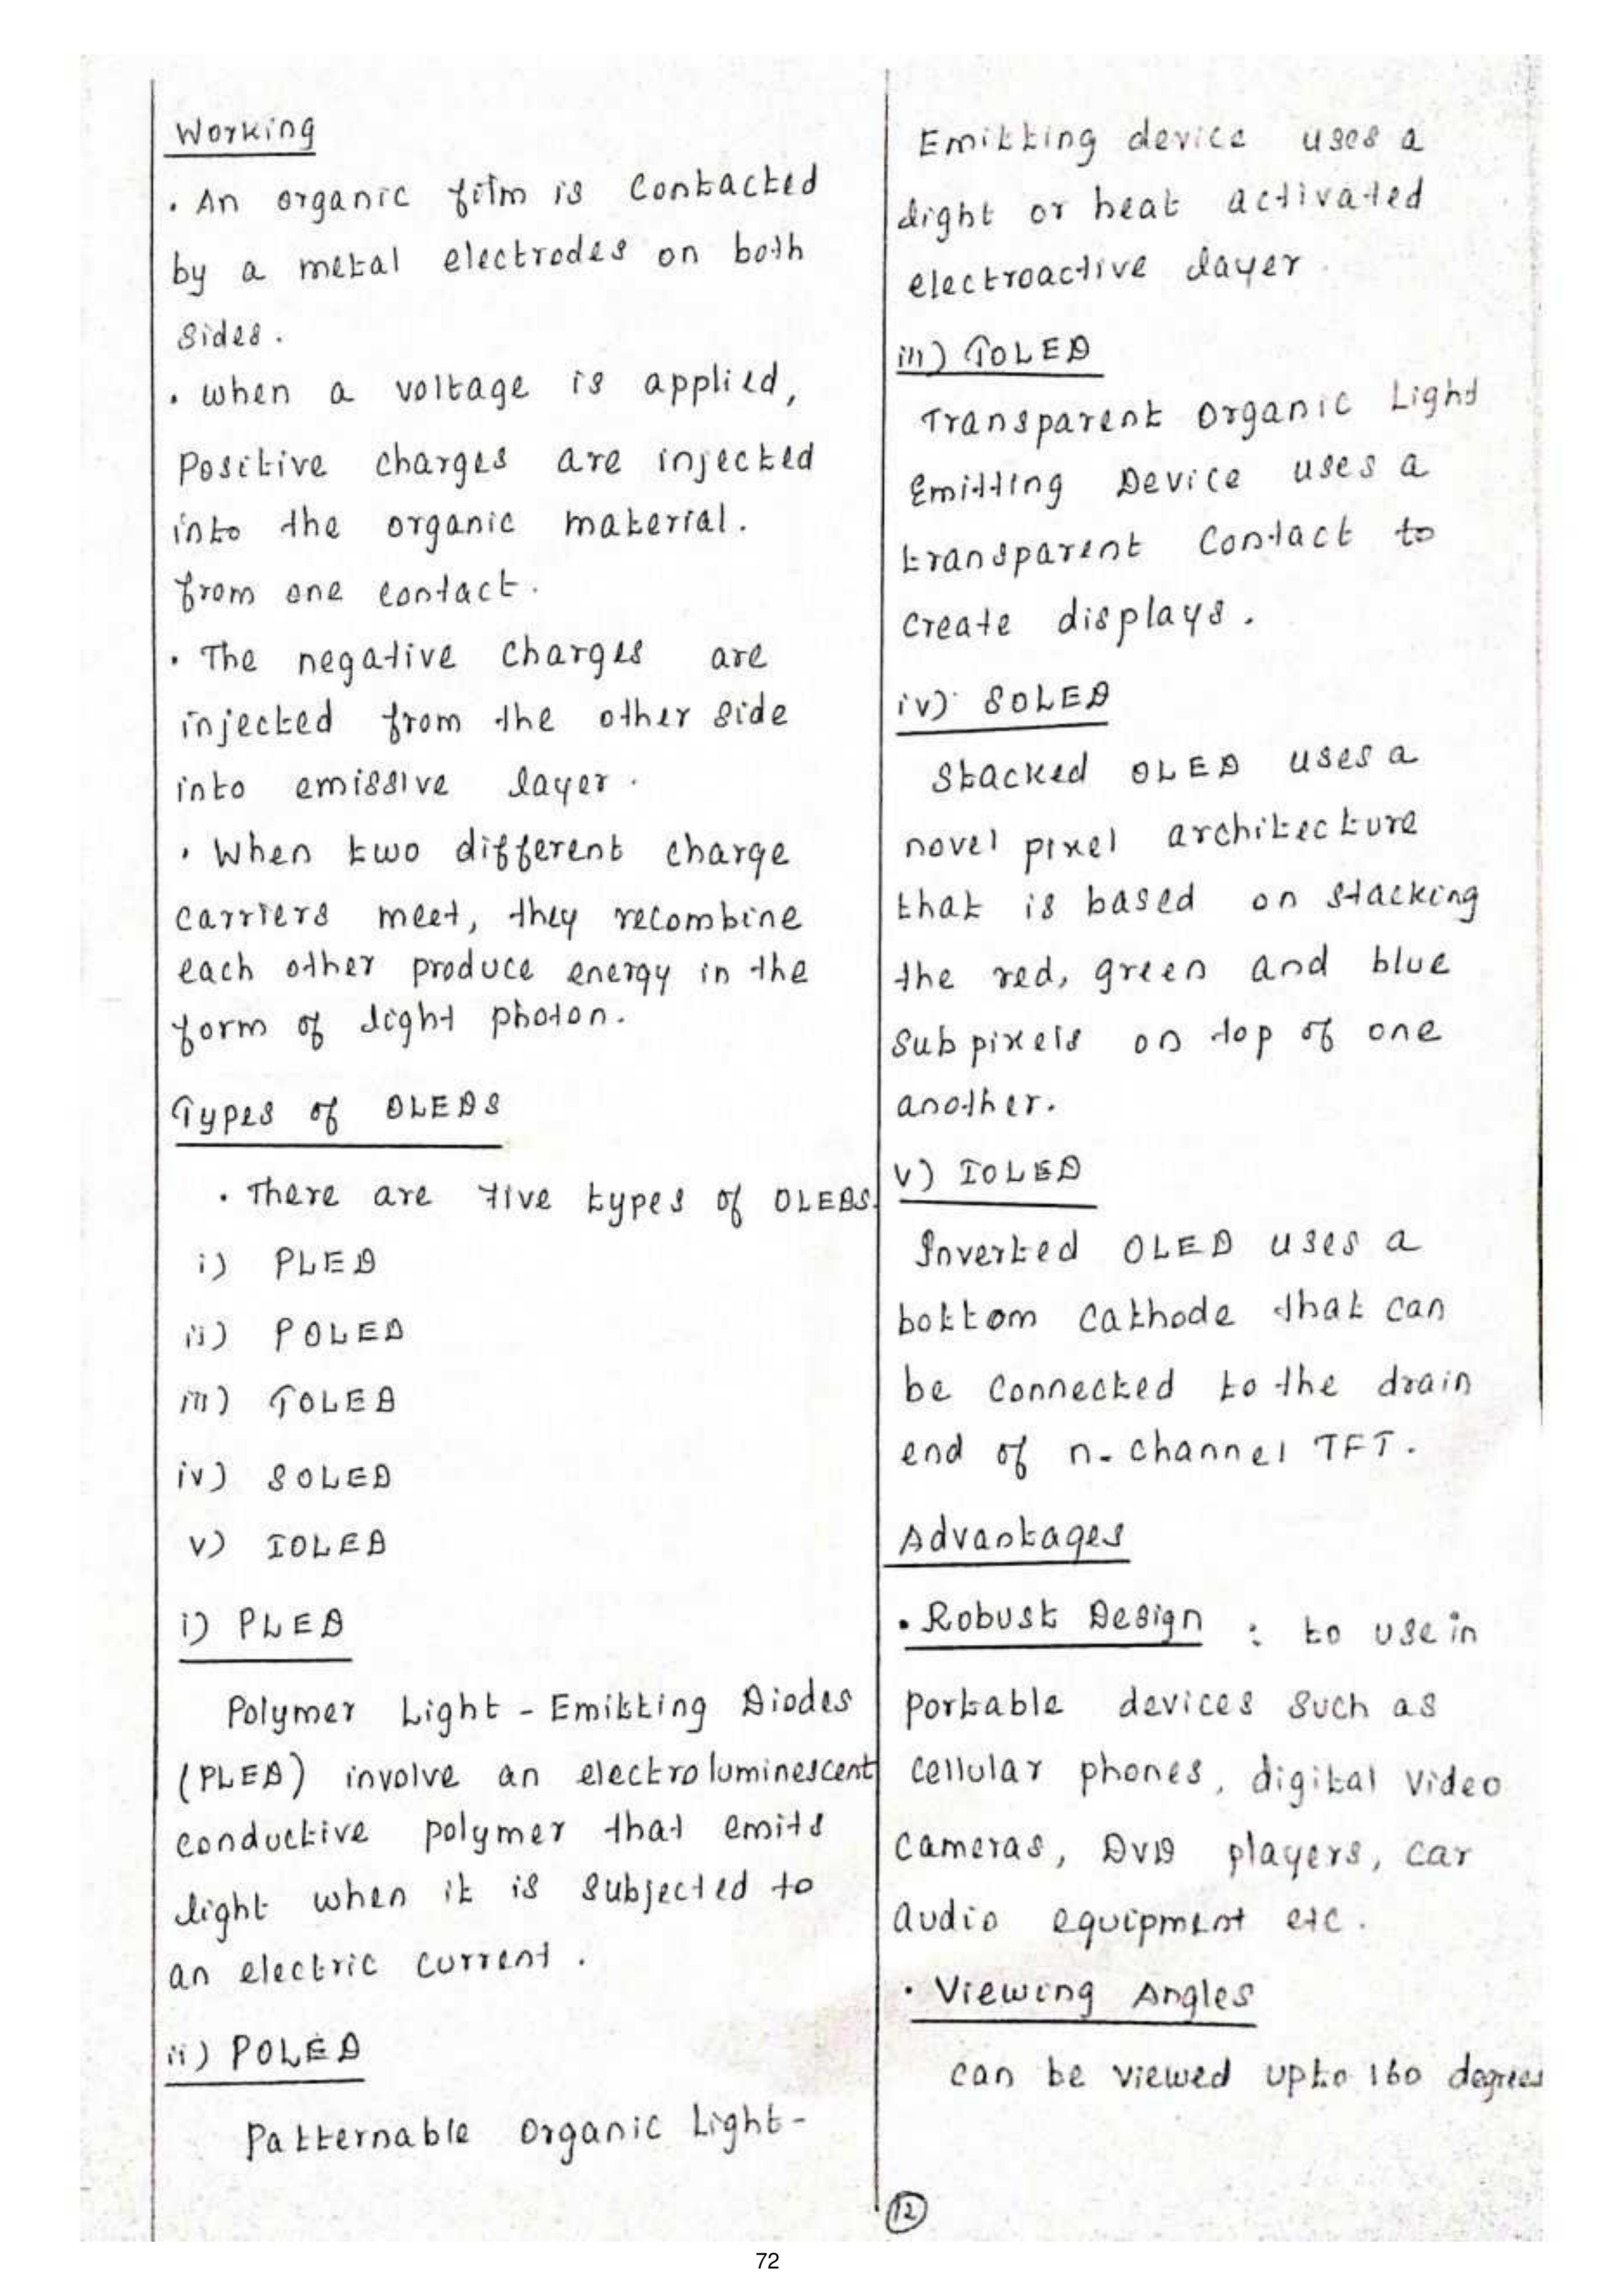 Working
• An organic film is contacted
by a metal electrodes on both
sides.
• when a voltage is applied,
positive charges are injected
into the organic material.
from one contact.
• The negative charges are
injected from the other side
into emissive layer.
• When two different charge
carriers meet, they recombine
each other produce energy in the
form of light photon.
Types of OLEDS
• There are five types of OLEDS.
i) PLED
ii) POLED
iii) TOLED
iv) SOLED
v) IOLED
i) PLED
Polymer Light - Emitting Diodes
(PLED) involve an electroluminescent
conductive polymer that emits
light when it is subjected to
an electric current.
ii) POLED
Patternable Organic Light-
Emitting device uses a
light or heat activated
electroactive layer.
iii) TOLED
Transparent Organic Light
Emitting Device uses a
transparent contact to
create displays.
iv) SOLED
Stacked OLED uses a
novel pixel architecture
that is based on stacking
the red, green and blue
subpixels on top of one
another.
v) IOLED
Inverted OLED uses a
bottom cathode that can
be connected to the drain
end of n-channel TFT.
Advantages
• Robust Design : to use in
portable devices such as
cellular phones, digital video
cameras, DVD players, car
audio equipment etc.
• Viewing Angles
can be viewed upto 160 degrees
12
72